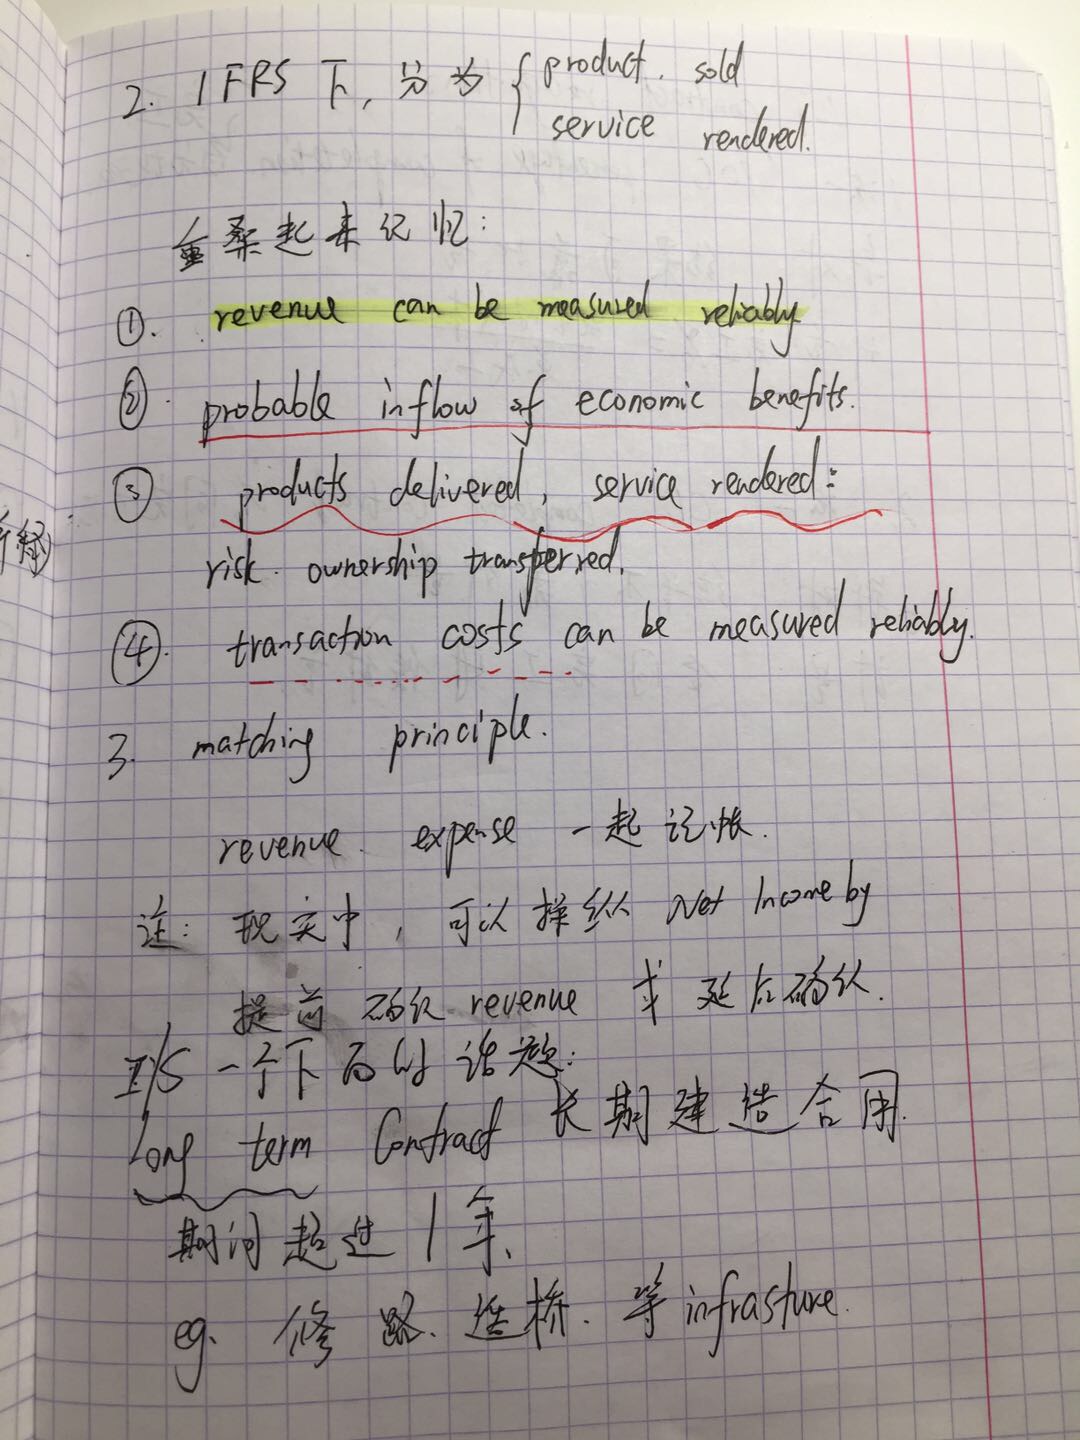 2. IFRS 下, 分为 { product. sold
service rendered.
叠桑起来记忆:
①. revenue can be measured reliably
②. probable inflow of economic benefits.
③ products delivered, service rendered:
risk. ownership transferred.
④. transaction costs can be measured reliably.
3. matching principle.
revenue. expense 一起记帐.
注: 现实中, 可以操纵 Net Income by
提前确认 revenue 或延后确认.
I/S 一个下面的话题:
Long term Contract 长期建造合同.
期间超过1年、
eg. 修路、造桥. 等 infrasture.